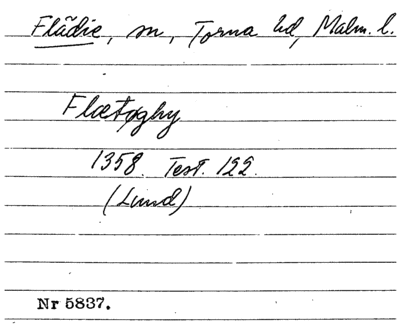 Flädie, sn, Torna hd, Malm. l.
Flætøghy
1358. Test. 122.
(Lund)
Nr 5837.